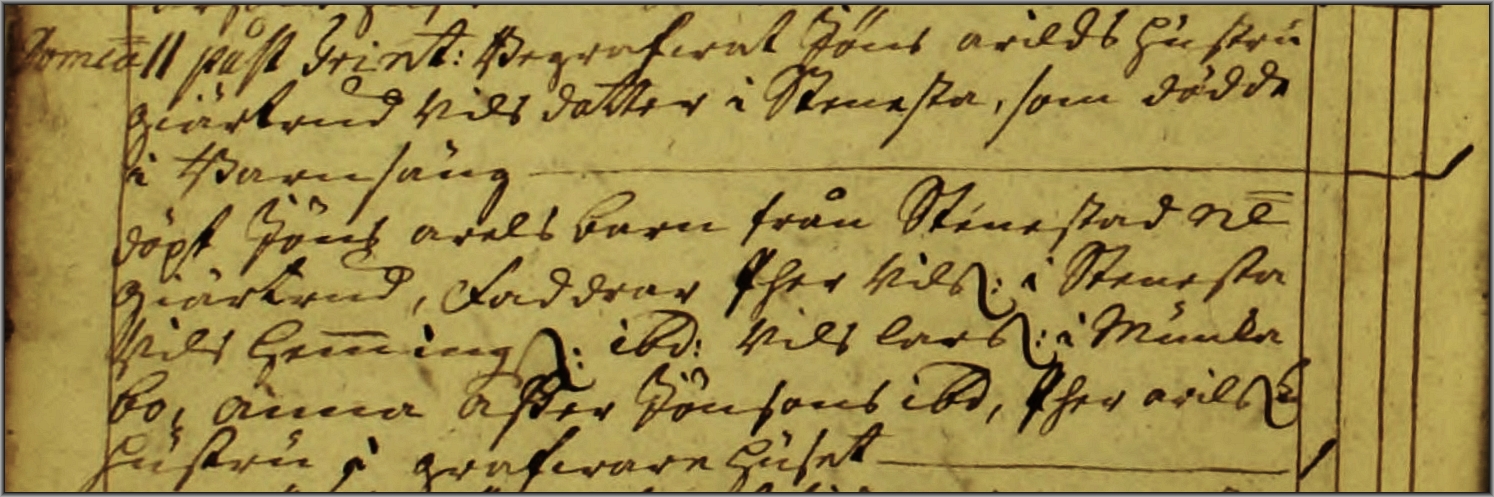 Domca 11 påst Trinit: Begrafwat Jöns arilds hustru
giärtrud Nils datter i Stenesta, som dödde
i Barnsäng
döpt Jöns arels barn från Stenestad nē
giärtrud, Faddrar Pher Nils: i Stenesta
Nils Hem̄ings: ibd: Nils lars: i Munka
bo, anna Assar Jönsons ibd, Pher arils:
hustru i grafware huset